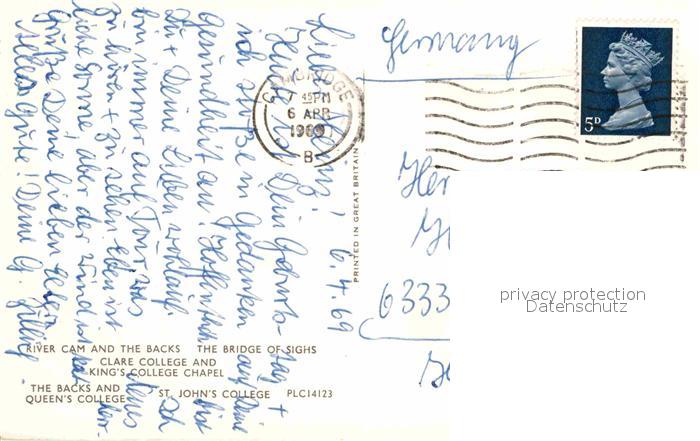 Germany
CAMBRIDGE
7 45PM
6 APR
1969
B
5D
6.4.69
Heute ist Dein Geburtstag +
ich stoße in Gedanken auf Deine
Gesundheit an! Hoffentlich bist
Du + Deine Lieben wohlauf. Ich
bin immer auf Tour was
zu hören + zu sehen eben ist.
liche Sonne, aber der Wind ist
Grüße Deine lieben Eltern
Alles Gute! Deine
PRINTED IN GREAT BRITAIN
6333
privacy protection
Datenschutz
RIVER CAM AND THE BACKS THE BRIDGE OF SIGHS
CLARE COLLEGE AND
KING'S COLLEGE CHAPEL
THE BACKS AND
QUEEN'S COLLEGE ST. JOHN'S COLLEGE PLC14123